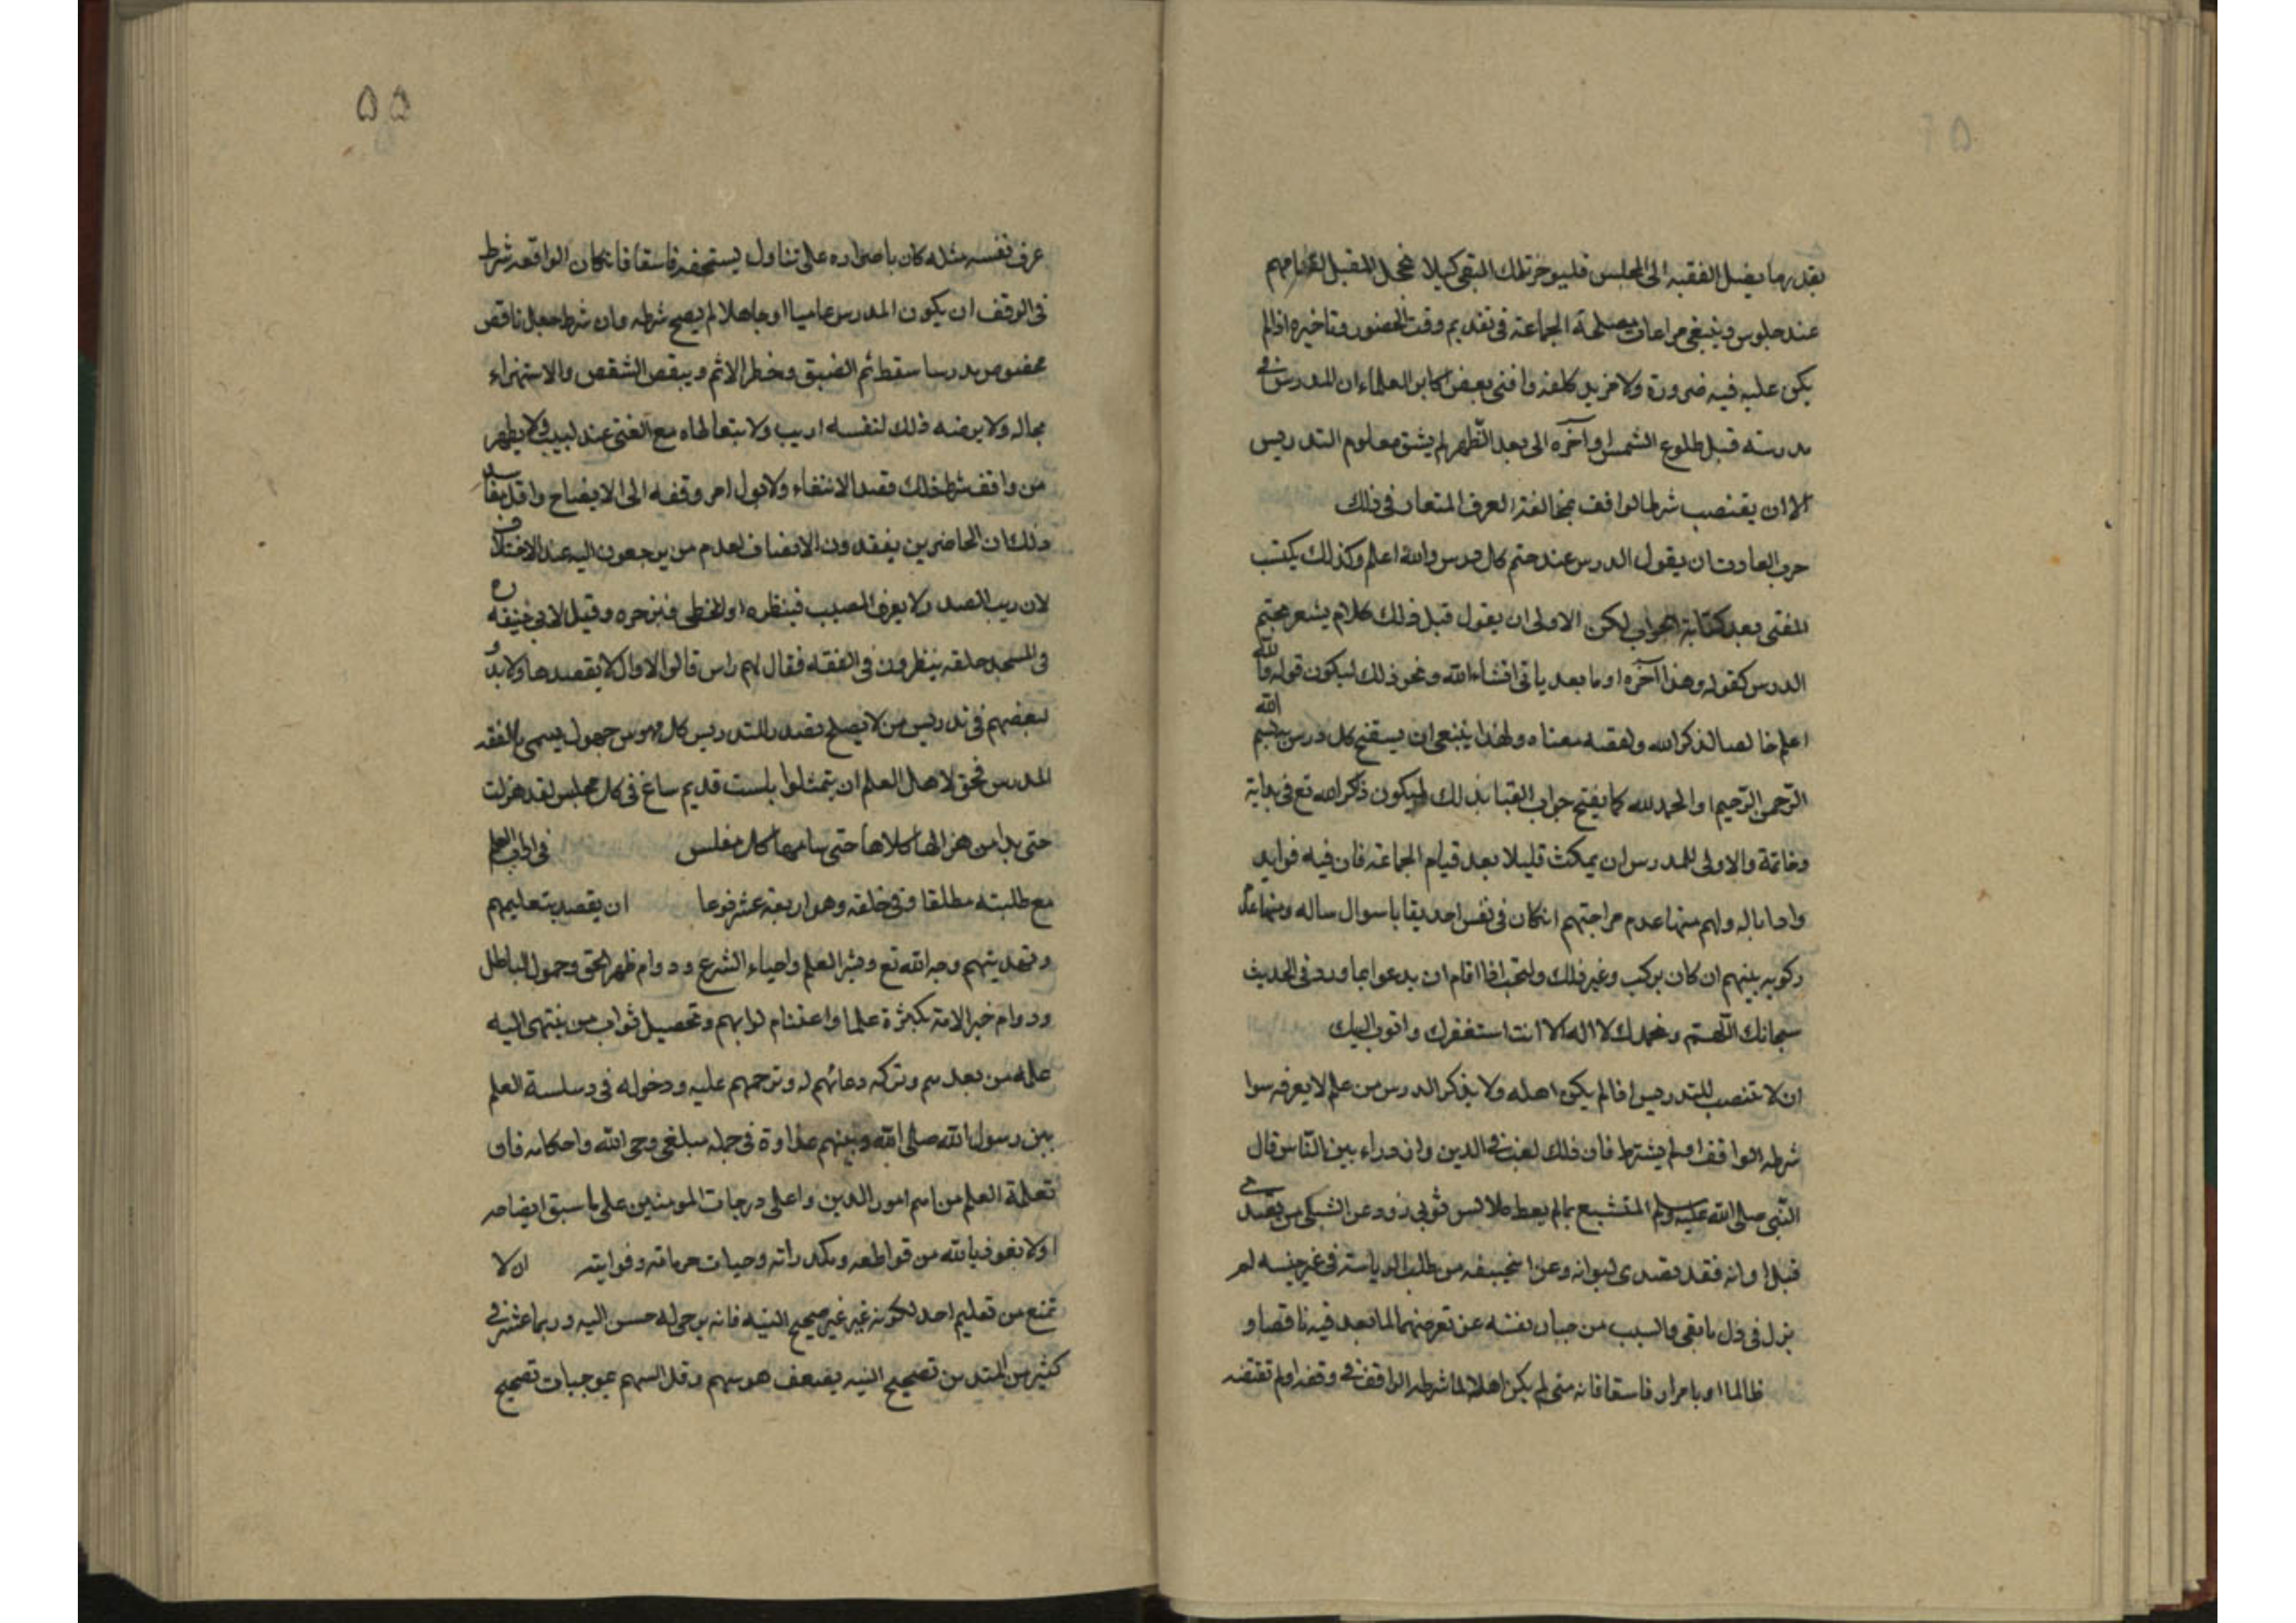 بقدر ما يصل الفقيه الى المجلس فليوخر تلك البقى كيلا نخجل المقبل لقيامهم
عند جلوس وينبغى مراعات مصلحة الجماعة فى تقديم وقت الحضور وتاخيره اذا لم
يكن عليه فيه ضرورة ولا مزيد كلفة وافتى بعض اكابر العلماء ان المدرس فى
مدرسته قبل طلوع الشمس او آخره الى بعد الظهر لم يشق معلوم التدريس
الا ان يقتصب شرط الواقف بمخالفة العرف المتعارف فى ذلك
جرب العادت ان يقول المدرس عند ختم كل درس والله اعلم وكذلك يكتب
المفتى بعد كتابة الجواب لكن الاولى ان يقول قبل ذلك كلام يشعر بختم
الدرس كقوله وهذا آخره او ما بعد ياتى انشاء الله ونحو ذلك ليكون قوله والله
اعلم خالصا لذكر الله ولقصد معناه ولهذا ينبغى ان يستفتح كل درس ببسم الله
الرحمن الرحيم او الحمد لله كما يفتح جواب الفتيا بذلك ليكون ذكر الله تع فى بداية
وخاتمة والاولى للمدرس ان يمكث قليلا بعد قيام الجماعة فان فيه فوايد
وادابا له ولهم منها عدم مزاحمتهم انكان فى نفس احد بقايا سوال ساله ومنها عدم
ركوبه بينهم ان كان يركب وغير ذلك ويستحب اذا قام ان يدعو بما ورد فى الحديث
سبحانك اللهم وبحمدك لا اله الا انت استغفرك واتوب اليك
ان لا تنتصب للتدريس اذا لم يكن اهله ولا يذكر الدرس من علم لا يعرفه سوا
شرطه الواقف او لم يشترط فان ذلك لعب فى الدين وازدراء بين الناس قال
النبى صلى الله عليه وسلم المتشبع بما لم يعط كلابس ثوبى زور وعن الشبلى من تصدى
قبل اوانه فقد تصدى لهوانه وعن ابى حنيفه من طلب الرياسة فى غير حينه لم
يزل فى ذل ما بقى واللبيب من صان نفسه عن تعرضها لما تعد فيه ناقصا و
ظالما او باصراره فاسقا فانه متى لم يكن اهلا لما شرطه الواقف فى وقفه او لم تقتضه
عرف نفسه مثله كان باصراره على تناول يستحقه فاسقا فانكان الواقف شرط
فى الوقف ان يكون المدرس عاميا او جاهلا لم يصح شرطه وان شرط جعل ناقص
مخصوص مدرسا سقط ثم الضيق وخطر الاثم ويبقى النقص والاستهزاء
بحاله ولا يرضه ذلك لنفسه اريب ولا يتعاطاه مع الغنى عند لبيب ولا يظهر
من واقف شرط ذلك قصد الانتفاء ولا يول امر وقفه الى الا بضياع واقل مفاسد
ذلك ان الحاضرين يفقدون الانصاف لعدم من يرجعون اليه عند الاختلاف
لان رب الصدر لا يعرف المصيب فينظره او المخطى فيزجره وقيل لابى حنيفه ره
فى المسجد حلقه ينظرون فى الفقه فقال لهم راس قالوا لا قال لا يفقه هاولا ابدا و
لبعضهم فى تدريس من لا يصلح تصدر للتدريس كل مهوس جهول يسمى بالفقيه
المدرس فحق لاهل العلم ان يتمثلوا ببيت قديم ساغ فى كل مجلس لقد هزلت
حتى بدا من هزالها كلاها حتى سامها كل مفلس فى اداب العلم
مع طلبته مطلقا وفى حلقته وهو اربعة عشر نوعا ان يقصد بتعليمهم
وتهديبهم وجه الله تع ونشر العلم واحياء الشرع ودوام ظهر الحق وخمول الباطل
ودوام خير الامة بكثرة علما واغتنام ثوابهم وتحصيل ثواب من ينتهى اليه
علمه من بعدهم وبركه دعائهم له وترحمهم عليه ودخوله فى سلسة العلم
بين رسول الله صلى الله وبينهم عداوة فى جمله مبلغى وحى الله واحكامه فان
تعلمة العلم من اهم امور الدين واعلى درجات المومنين على ما سبق ايضاحه
اولا نعوذ بالله من قواطعه ومكدراته وحيات حرمانه وفواته ان لا
تمنع من تعليم احد لكونه غير صحيح النيه فانه يرجى له حسن النيه وربما عسر فى
كثير من المبتدئين تصحيح النيه بضعف نفوسهم وقلة انسهم بموجبات تصحيح